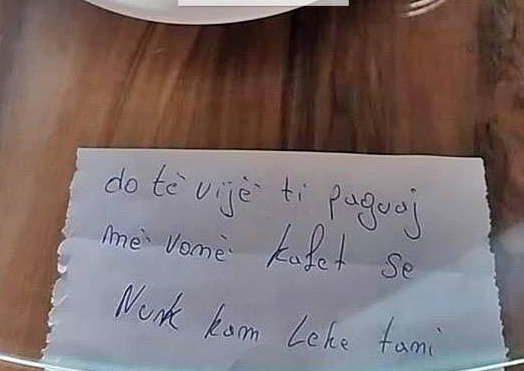 do të vijë ti paguaj
më vonë kafet se
Nuk kam Leke tani